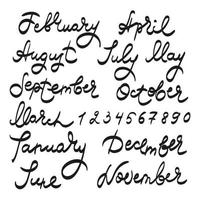 February April
August July May
September October
March 1 2 3 4 5 6 7 8 9 0
January December
June November